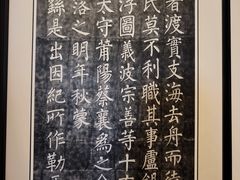 者渡實支海去舟而徒
民莫不利職其事盧錫
浮圖義波宗善等十
太守莆陽蔡襄爲之合
落之明年秋蒙
繇是出因紀所作勒